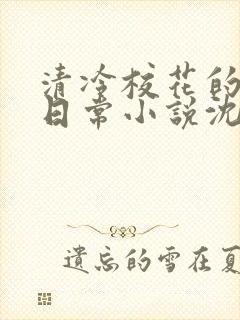 清冷校花的
日常小説沈
遺忘的雪在夏